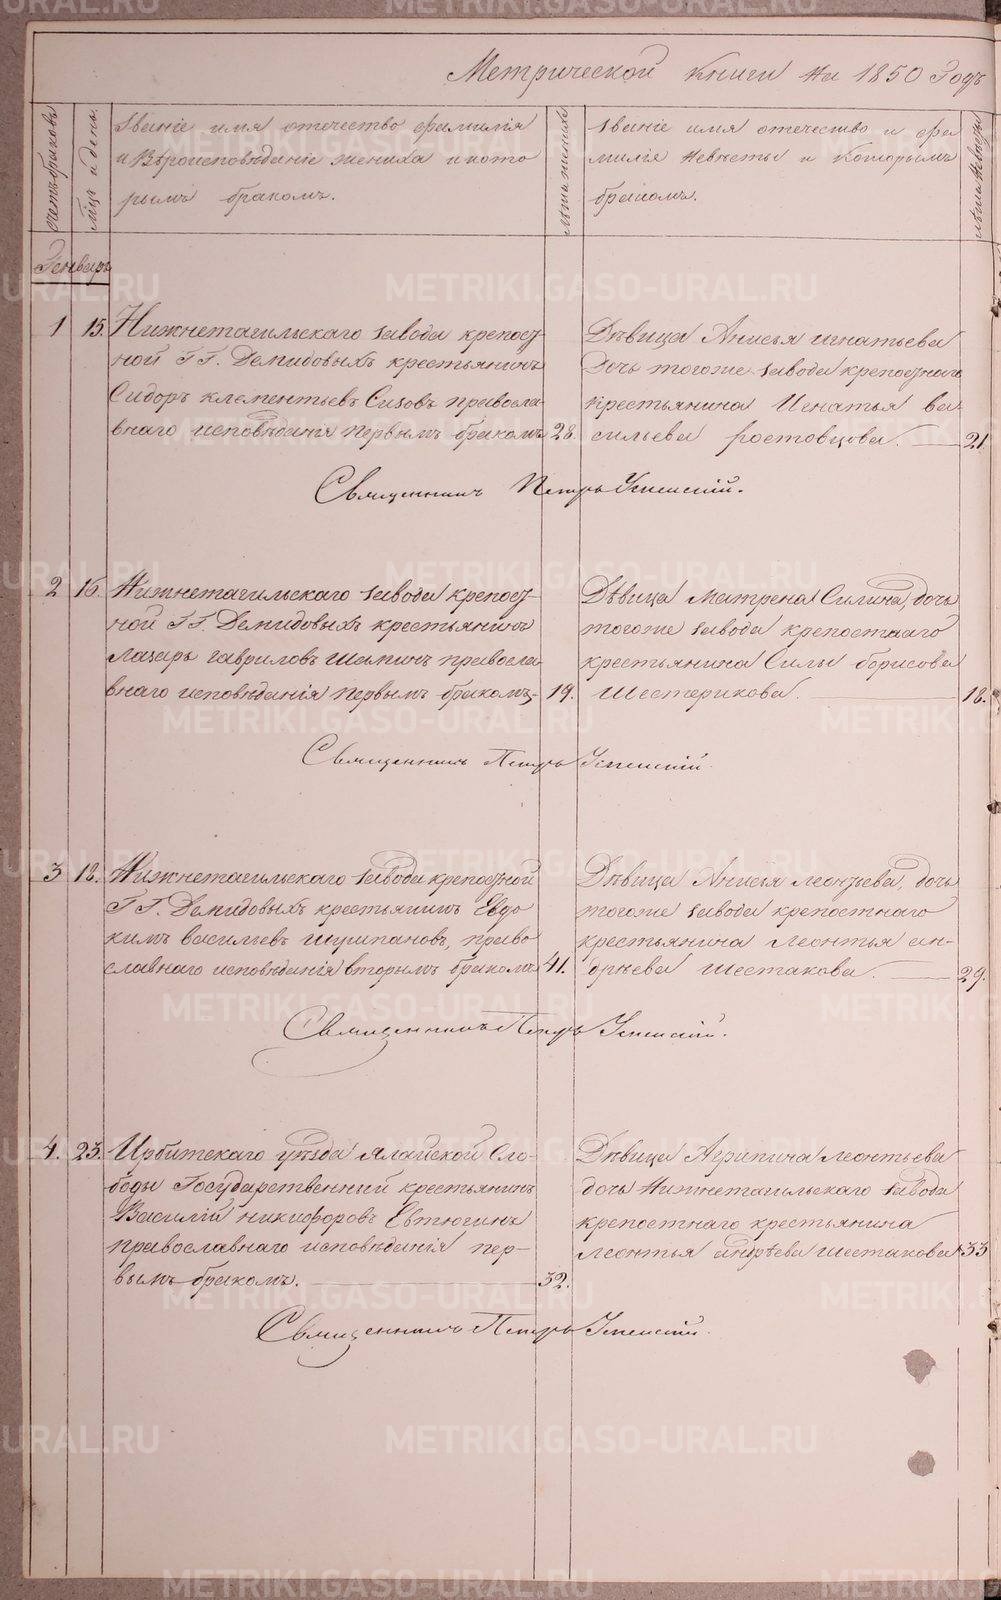 Метрической книги на 1850 Годъ
счетъ браковъ
мцъ и день.
Званіе имя отечество фамилія
и Вѣроисповѣданіе жениха и кото
рымъ бракомъ.
лѣта жениха
Званіе имя отечество и фа
милія Невѣсты и Которымъ
бракомъ.
лѣта Невѣсты
Генварь
1 15. Нижнетагильскаго завода крепост-
ной ГГ. Демидовыхъ крестьянинъ
Сидоръ клементьевъ Сизовъ правосла-
внаго исповѣданія первымъ бракомъ 28.
Дѣвица Анисья игнатьева
Дочь тогоже завода крепостнаго
крестьянина Игнатья ва-
сильева ростовцова. 21.
Священникъ Петръ Успенскій.
2 16. Нижнетагильскаго завода крепост-
ной ГГ. Демидовыхъ крестьянинъ
Лазарь гавриловъ шаминъ правосла-
внаго исповѣданія первымъ бракомъ. 19.
Дѣвица Матрена Силина, дочь
тогоже завода крепостнаго
крестьянина Силы борисова
Шестерикова. 18.
Священникъ Петръ Успенскій
3 18. Нижнетагильскаго завода крепостной
ГГ. Демидовыхъ крестьянинъ Евдо
кимъ васильевъ шушпановъ, право
славнаго исповѣданія вторымъ бракомъ 41.
Дѣвица Анисья леонтьева, дочь
тогоже завода крепостнаго
крестьянина леонтья ан-
дрѣева шестакова. 29.
Священникъ Петръ Успенскій.
4. 23. Ирбитскаго уѣзда Алапской Сло-
боды Государственный крестьянинъ
Василій никифоровъ Евтюгинъ
православнаго исповѣданія пер-
вымъ бракомъ. 32.
Дѣвица Агрипина леонтьева
дочь Нижнетагильскаго завода
крепостнаго крестьянина
леонтья андрѣева шестакова 33
Священникъ Петръ Успенскій.
METRIKI.GASO-URAL.RU